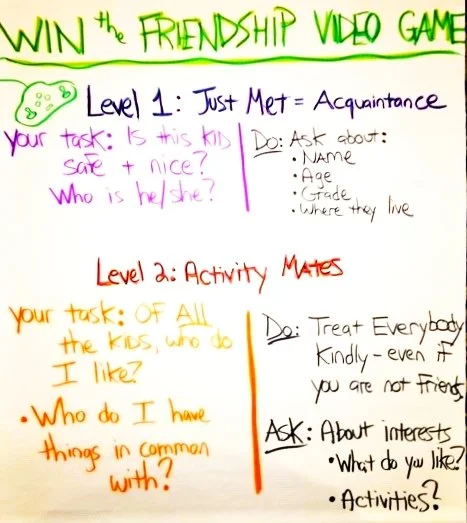 WIN the FRIENDSHIP VIDEO GAME
Level 1: Just Met = Acquaintance
your task: Is this KID
safe + nice?
Who is he/she?
Do: Ask about:
• NAME
• Age
• Grade
• Where they live
Level 2: Activity MATES
your task: OF ALL
the KIDS, who do
I like?
• Who do I have
things in common
with?
Do: Treat Everybody
Kindly - even if
you are not Friends.
ASK: About interests
• What do you like?
• Activities?